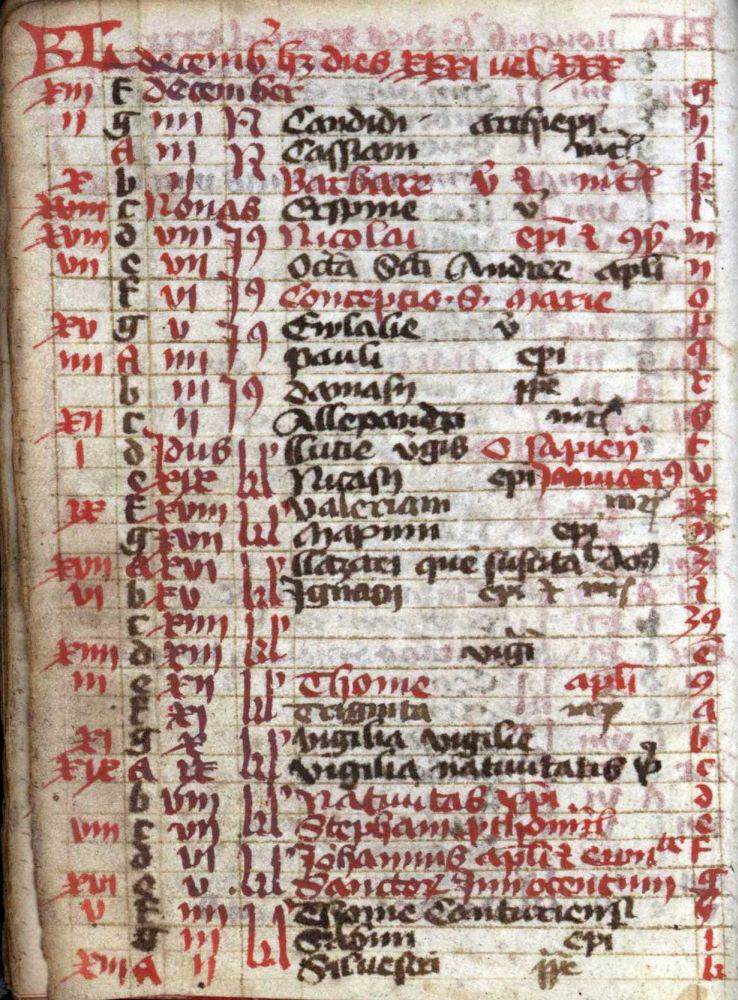 KL decemb hz dies xxxi vel xxx
xiii f december g
ii g iiii N Candidi archiepi h
A iii N Cassiani mr i
x b ii Barbare v & mr k
c Nonas Crispine v l
xviii d viii Id9 Nicolai epi & gf m
vii e vii Octa Scti Andree apli n
f vi Id9 Conceptio S marie o
xv g v Id9 Eulalie v p
iiii A iiii Pauli epi q
b iii Id9 damasij ppe r
xii c ii Allexandri mr s
i d Idus kl llucie vgis O sapien t
e xix kl Nicasij epi Januarij v
ix f xviii Valeriani mr x
g xvii kl Maximi epi
xvii A xvi llazari que suscita dns z
vi b xv kl Ignacij epi & mr &
c xiiii kl 39
xiiii d xiii kl vigi
iii e xii kl Thome apli 9
f xi kl Triginta mr a
xi g x kl vigilia vigilie b
xix A ix kl vigilia nativitatis xp c
b viii kl Nativitas xpi d
viii c vii kl Stephani e
d vi kl Johannis apli & evan f
xvi e v kl Sanctor Innocentum g
v f iiii Thome Canturiensis h
g iii kl Sabini epi i
xiii A ii Silvestri ppe k